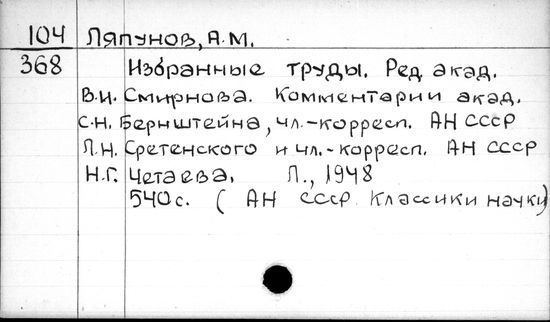 104 Ляпунов, А.М.
368 Избранные труды. Ред. акад.
В.И. Смирнова. Комментарии акад.
С.Н. Бернштейна, чл.-корресп. АН СССР
Л.Н. Сретенского и чл.-корресп. АН СССР
Н.Г. Четаева. Л., 1948
540с. (АН СССР. Классики науки)